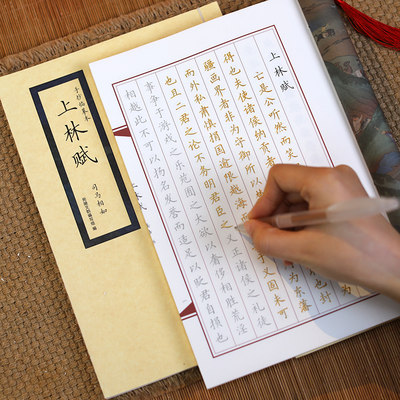 手抄临摹本
上林赋
司马相如
上林赋
亡是公听然而笑 为
得也夫使诸侯纳贡者 也封
疆画界者非为守御所以 为东藩
而外私肃慎捐国逾限越海 于义固未可
也且二君之论不务明君臣之义正诸侯之礼徒
事争于游戏之乐苑囿之大欲以奢侈相胜荒淫
相越此不可以扬名发誉而适足以贬君自损也